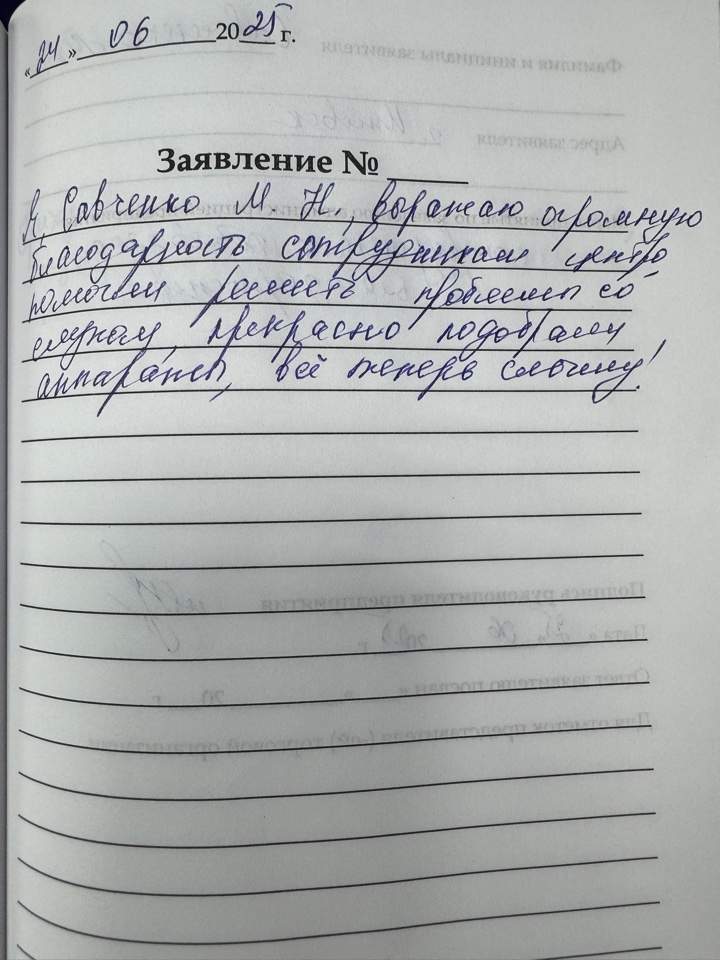 «24» 06 2025 г.
Заявление № ____
Я, Савченко М. Н., выражаю огромную
благодарность сотрудникам центра
помогли решить проблемы со
слухом, прекрасно подобрали
аппараты, всё теперь слышу!